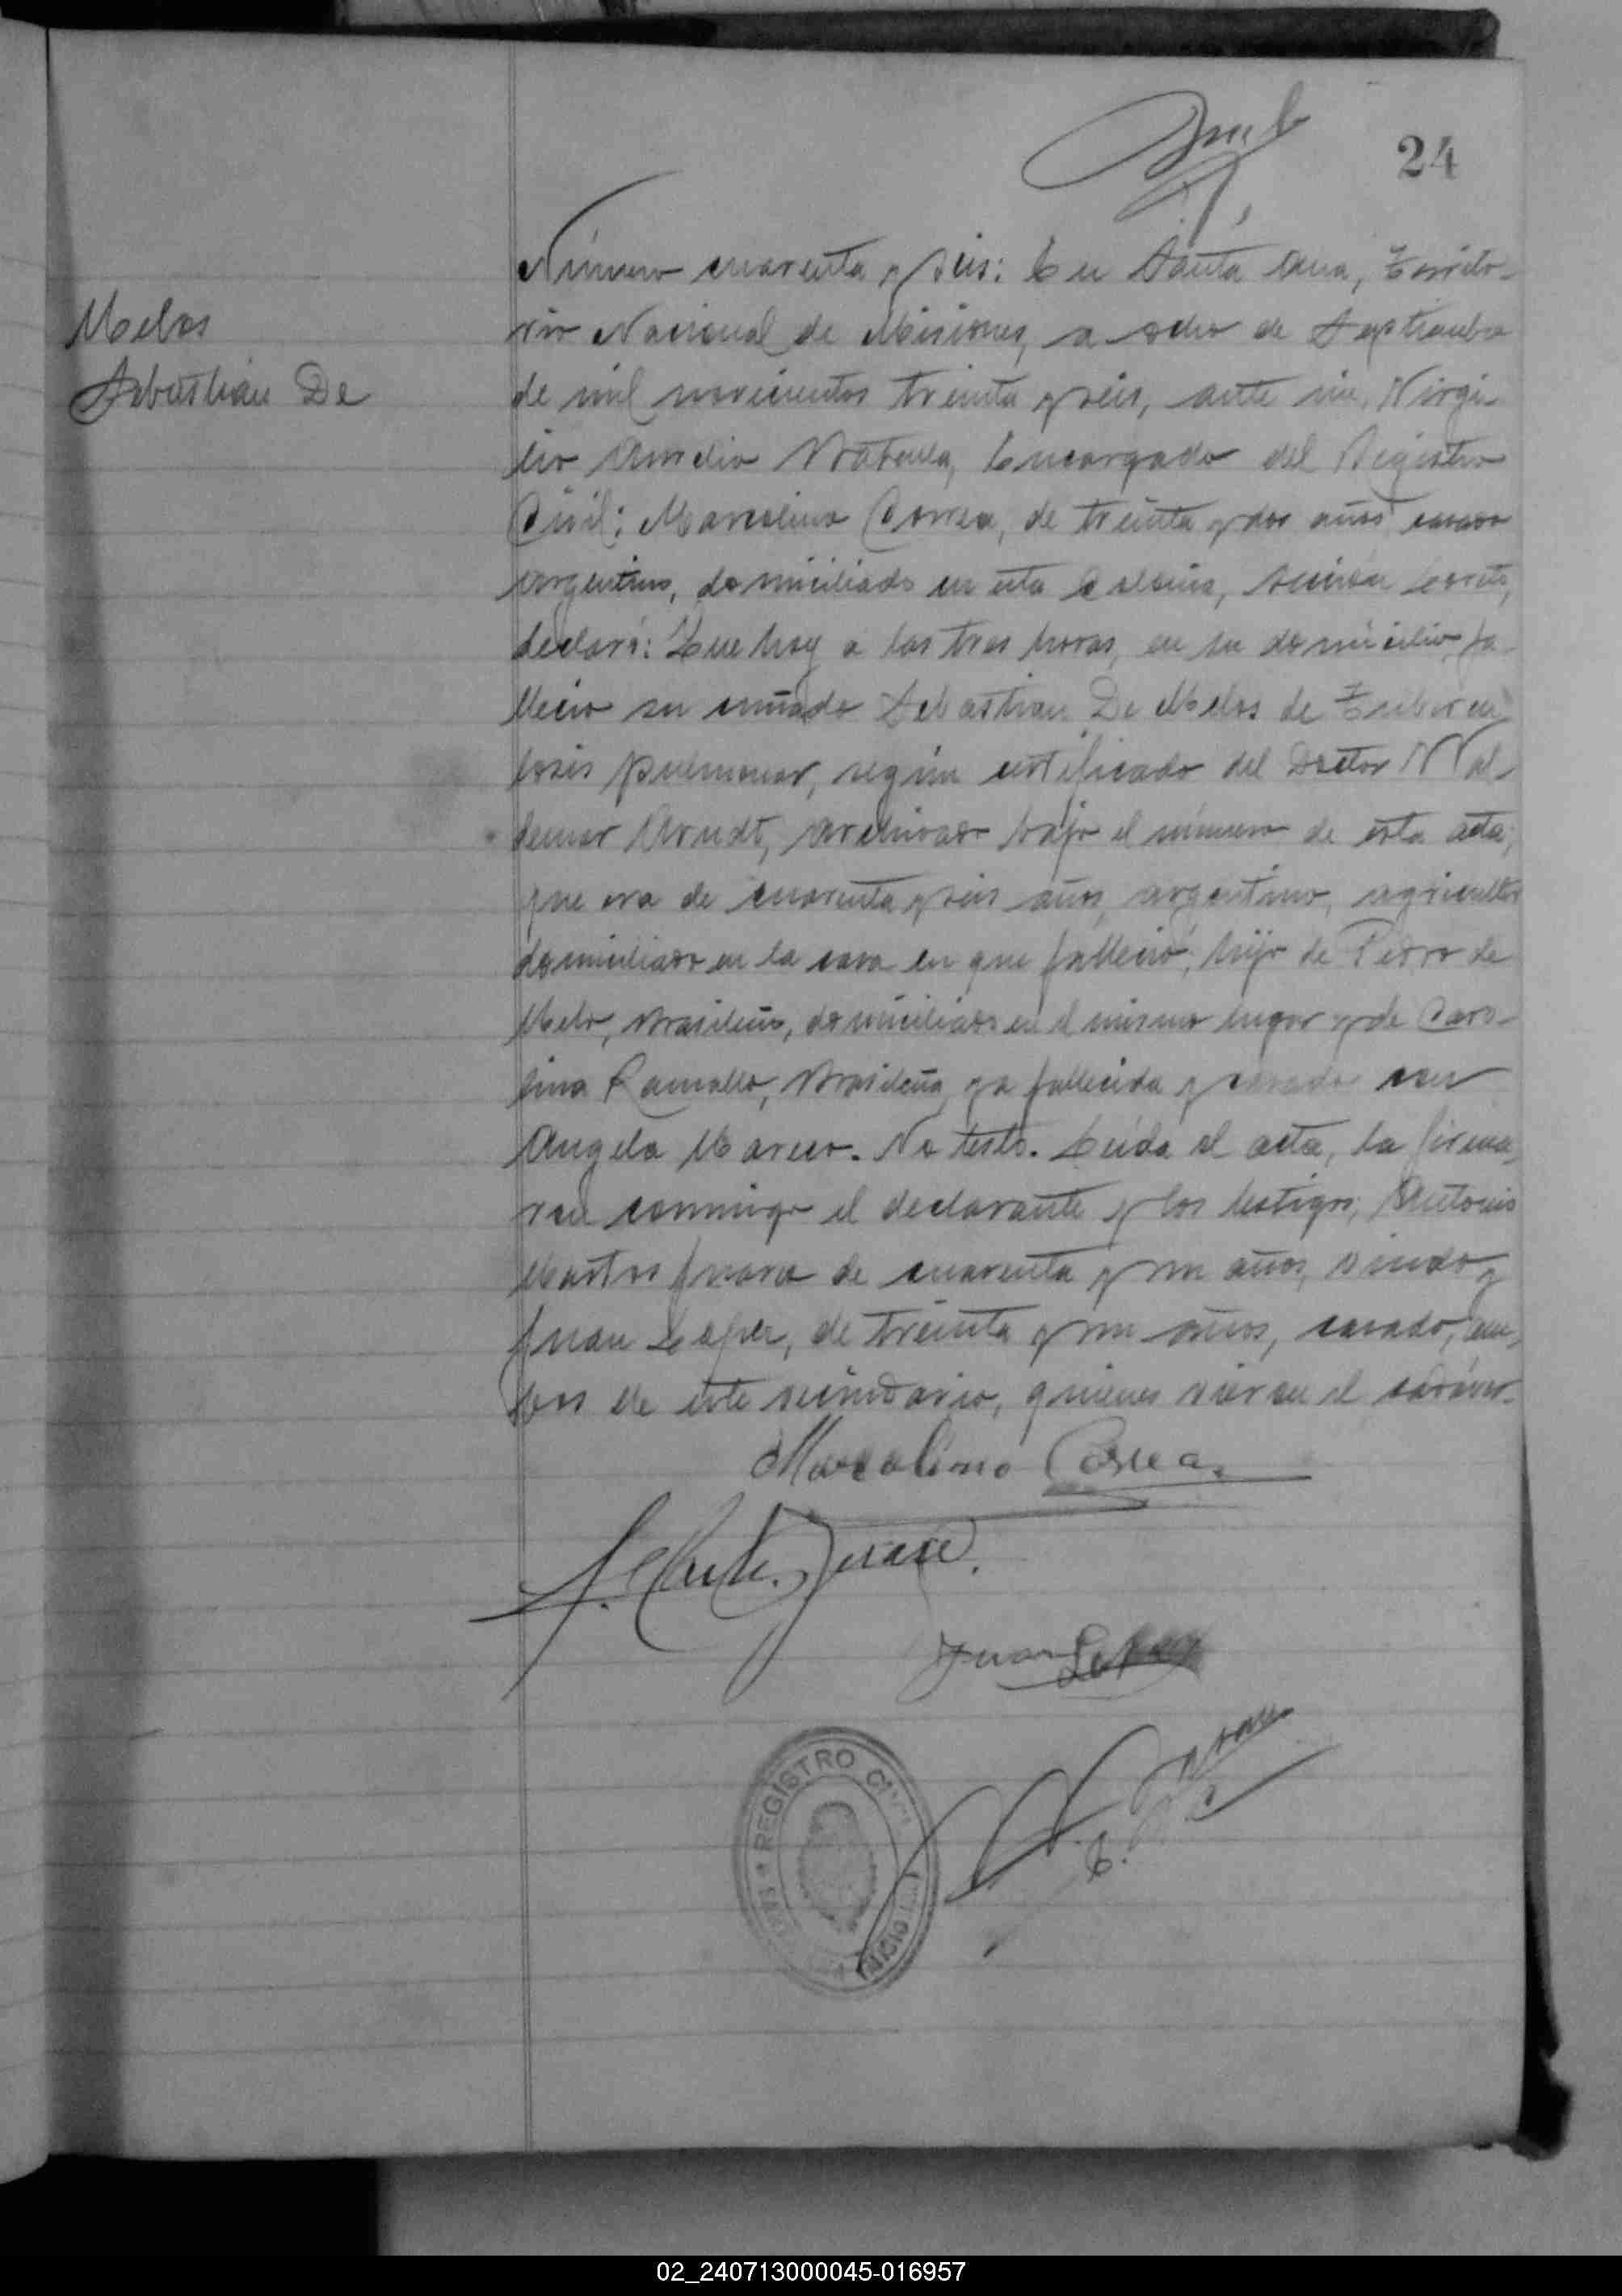 24
Melos
Sebastian De
Número cuarenta y seis: En Santa Ana, Territo-
rio Nacional de Misiones, a ocho de Septiembre
de mil novecientos treinta y seis, ante mi, Virgi-
lio Amelio Encargado del Registro
Civil: Marcelino Correa, de treinta y dos años casado
argentino, domiciliado en esta Colonia, sección Loreto,
declaró: Que hoy a las tres horas, en su domicilio fa-
llecio su cuñado Sebastian De Melos de Tubercu
losis pulmonar, según certificado del Doctor Wal-
demar Arndt, archivado bajo el número de esta acta;
que era de cuarenta y seis años, argentino, agricultor
domiciliado en la casa en que falleció; hijo de Pedro de
Melo, Brasileño, domiciliado en el mismo lugar y de Caro-
lina Ramallo, Brasileña ya fallecida y casado con
Angela Marero. No testó. Leida el acta, la firma-
ron conmigo el declarante y los testigos; Antonio
Martos Juara de cuarenta y un años, viudo y
Juan Lopez, de treinta y un años, casado, am-
bos de este vecindario, quienes vieron el cadáver.
Marcelino Correa.
Juan Lopez
REGISTRO CIVIL